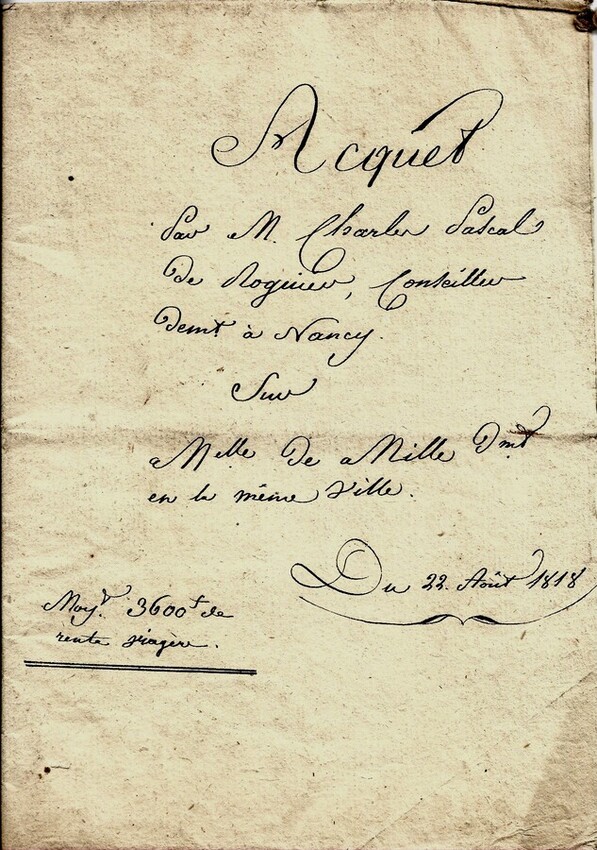 Acquet
Par M. Charles Pascal
De Roginier, Conseiller
demt à Nancy.
Sur
Melle De Mille Dmt
en la même Ville.
Du 22. Août 1818
Moyt. 3600f de
rente viagère.